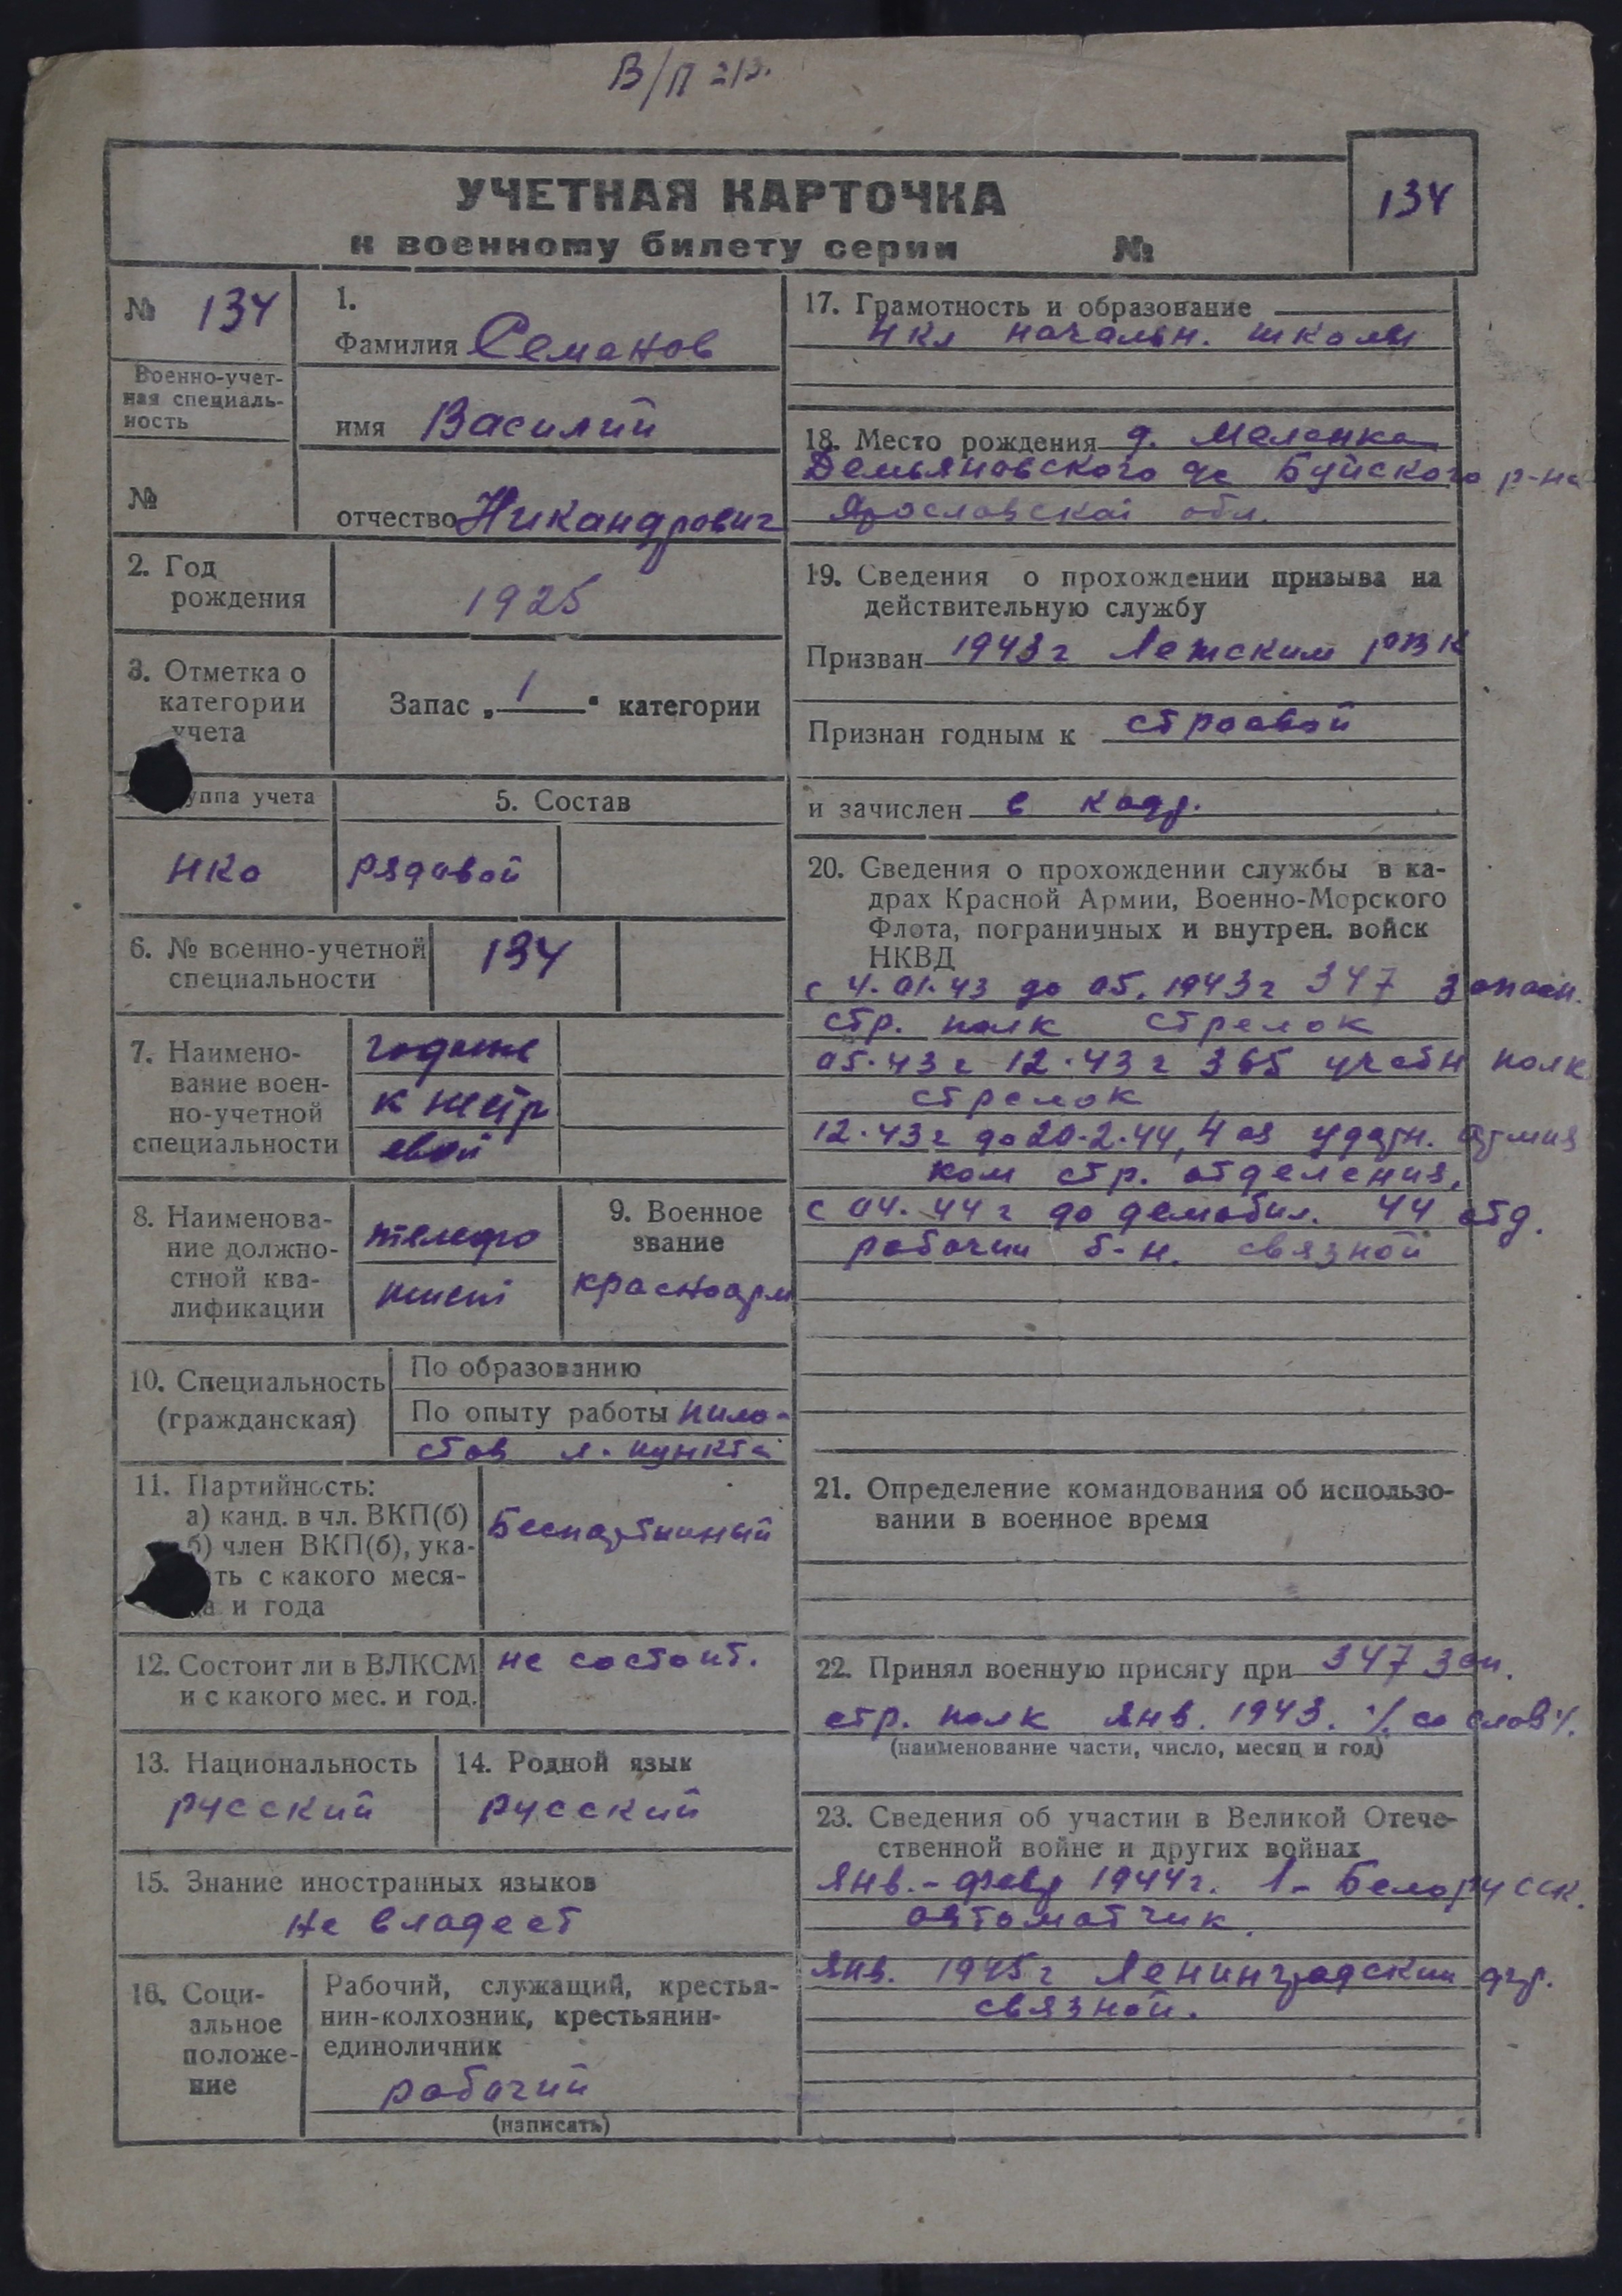 В/П 213.
УЧЕТНАЯ КАРТОЧКА
к военному билету серии №
134
№ 134
Военно-учет-
ная специаль-
ность
№
1.
Фамилия Семенов
имя Василий
отчество Никандрович
2. Год
рождения
1925
3. Отметка о
категории
учета
Запас „ 1 " категории
уппа учета
НКО
5. Состав
рядовой
6. № военно-учетной
специальности
134
7. Наимено-
вание воен-
но-учетной
специальности
годные
к нестр
евой
8. Наименова-
ние должно-
стной ква-
лификации
телефо
нист
9. Военное
звание
красноарм
10. Специальность
(гражданская)
По образованию
По опыту работы пило-
став л. пункта
11. Партийность:
а) канд. в чл. ВКП(б)
б) член ВКП(б), ука-
ть с какого меся-
ца и года
Беспартийный
12. Состоит ли в ВЛКСМ
и с какого мес. и год.
не состоит.
13. Национальность
русский
14. Родной язык
русский
15. Знание иностранных языков
Не владеет
16. Соци-
альное
положе-
ние
Рабочий, служащий, крестья-
нин-колхозник, крестьянин-
единоличник
рабочий
(написать)
17. Грамотность и образование
4 кл начальн. школы
18. Место рождения д. Меленка
Демьяновского с/с Буйского р-на
Ярославской обл.
19. Сведения о прохождении призыва на
действительную службу
Призван 1943 г Лежским РВК
Признан годным к строевой
и зачислен в кадр.
20. Сведения о прохождении службы в ка-
драх Красной Армии, Военно-Морского
Флота, пограничных и внутрен. войск
НКВД
с 4.01.43 до 05.1943 г 347 запасн.
стр. полк стрелок
05.43 г 12.43 г 365 учебн полк
стрелок
12.43 г до 20.2.44, 4 ая ударн. армия
ком стр. отделения.
с 04.44 г до демобил. 44 отд.
рабочий б-н. связной
21. Определение командования об использо-
вании в военное время
22. Принял военную присягу при 347 зап.
стр. полк янв. 1943. /со слов/.
(наименование части, число, месяц и год)
23. Сведения об участии в Великой Отече-
ственной войне и других войнах
Янв.-февр 1944 г. 1-Белорусск.
автоматчик.
Янв. 1945 г Ленинградский фр.
связной.